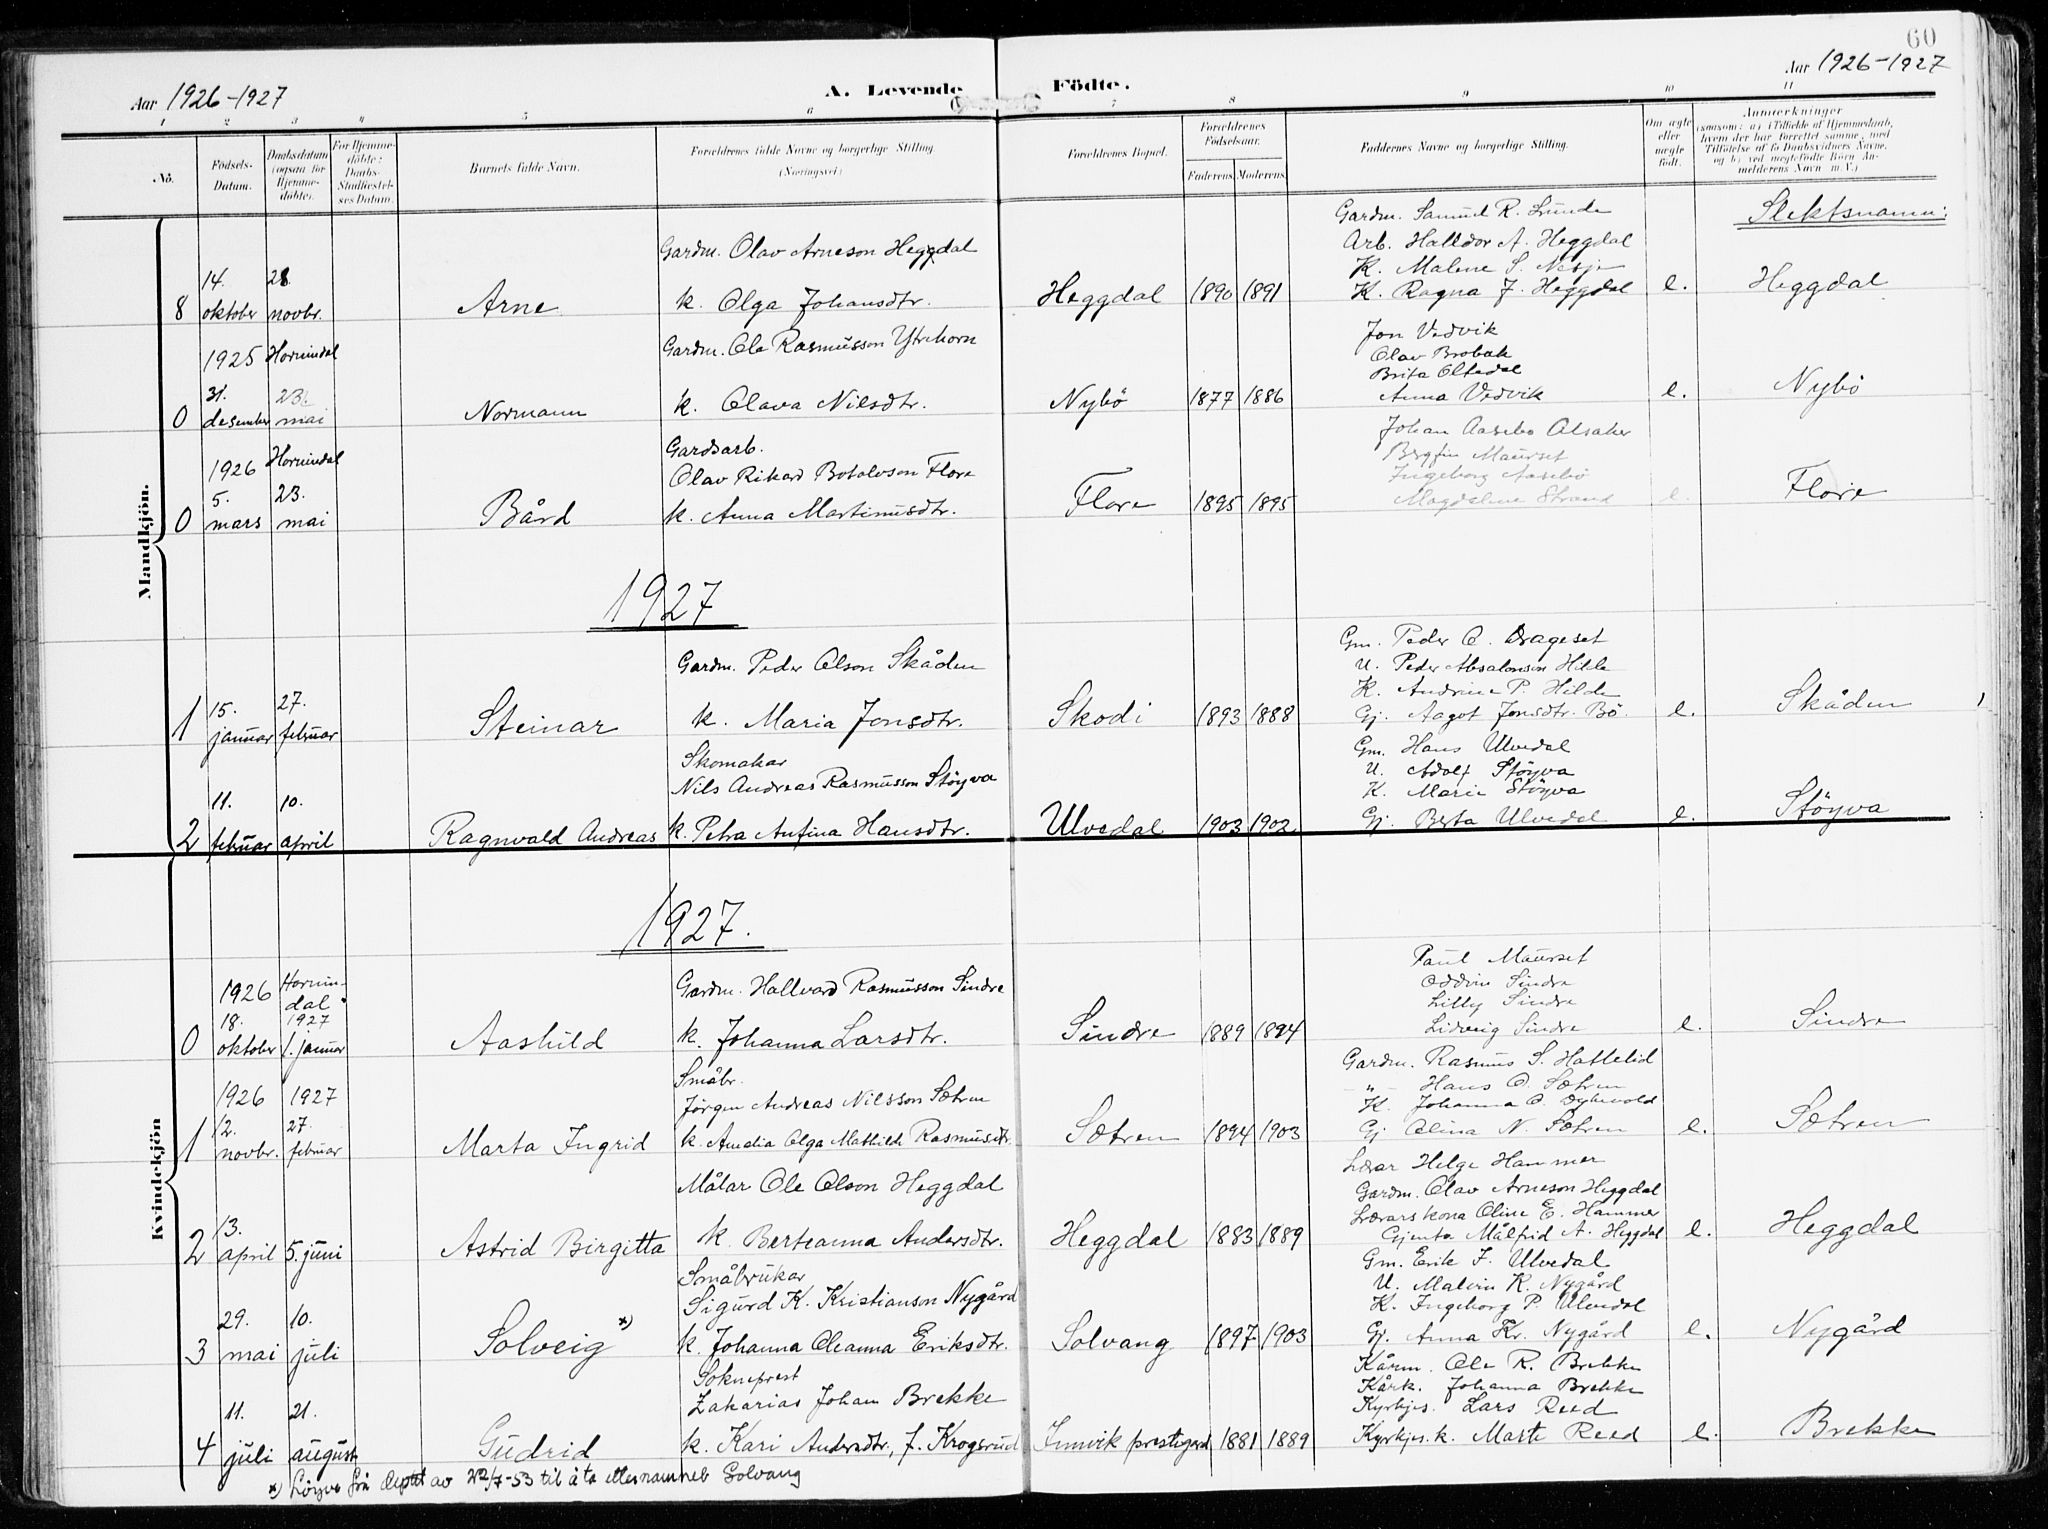 60
Aar 1926-1927
A. Levende Födte.
Aar 1926-1927
1 2 3 4 5 6 7 8 9 10 11
No.
Födsels-Datum.
Daabsdatum (ogsaa for Hjemme-döbte).
For Hjemme-döbte: Daabs-Stadfæstel-ses Datum.
Barnets fulde Navn.
Forældrenes fulde Navne og borgerlige Stilling. (Næringsvei)
Forældrenes Bopæl.
Forældrenes Födselsaar.
Faderens. Moderens.
Faddernes Navne og borgerlige Stilling.
Om ægte eller uægte födt.
Anmerkninger
(saasom: a) i Tilfælde af Hjemmedaab, hvem der har forrettet samme, med Tilföielse af to Daabsvidners Navne, og b) ved uægtefödte Börn Anmelderens Navn m.V.)
Slektsnamn:
Mandkjön.
Gardm. Samuel R. Lunde
Gardm. Olav Arneson Heggdal
Arb. Halldor A. Heggdal
K. Malene S. Nesje
8 14. oktober 28. novbr. Arne k. Olga Johansdtr. Heggdal 1890 1891 K. Ragna J. Heggdal e. Heggdal
1925 Hornindal
Gardm. Ole Rasmusson Ytrehorn
Jon Vedvik
Olav Brobak
Brita Oltedal
0 31. desember 23. mai Normann k. Olava Nilsdtr. Nybö 1877 1886 Anna Vedvik e. Nybö
1926 Hornindal
Gardsarb.
Olav Rikard Botolvson Flore
Johan Aasebø Alsaker
Bergfin Maurset
Ingeborg Aasebö
0 5. mars 23. mai Bård k. Anna Martinusdtr. Flore 1895 1895 Magdalene Strand e. Flore
1927
Gardm. Peder Olson Skåden
Gm. Peder O. Drageset
U. Peder Absalonson Hilde
K. Andrine P. Hilde
1 15. januar 27. februar Steinar k. Maria Jonsdtr. Skodi 1893 1888 Gj. Aagot Jonsdtr. Bö. e. Skåden
Skomakar
Nils Andreas Rasmusson Stöyva
Gm. Hans Ulvedal
U. Adolf Stöyva
K. Marie Stöyva
2 11. februar 10. april Ragnvald Andreas k. Petra Anfina Hansdtr. Ulvedal 1903 1902 Gj. Berta Ulvedal e. Stöyva
Kvindekjön
1927.
1926 Hornindal
Gardm. Hallvard Rasmusson Sindre
Paul Maurset
Oddvin Sindre
Lilly Sindre
0 18. oktober 1927 1. januar Aashild k. Johanna Larsdtr. Sindre 1889 1894 Lidveig Sindre e. Sindre
1926 1927
Småbr.
Jörgen Andreas Nilsson Sætren
Gardm. Rasmus S. Hattelid
-"- Hans O. Sætren
K. Johanna O. Dybevold
1 12. novbr. 27. februar Marta Ingrid k. Amalia Olga Mathilde Rasmusdtr. Sætren 1894 1903 Gj Olina N. Sætren e. Sætren
Målar Ole Olson Heggdal
Lærar Helge Hammer
Gardm. Olav Arneson Heggdal
Lærarskona Oline E. Hammer
2 13. april 5. juni Astrid Birgitta k. Berteanna Andersdtr. Heggdal 1883 1889 Gjenta Målfrid A. Heggdal e. Heggdal
Småbrukar
Sigurd K. Kristianson Nygård
Gm. Erik J. Ulvedal
U. Malvin K. Nygård
K. Ingeborg P. Ulvedal
3 29. mai 10. juli Solveig *) k. Johanna Oleanna Eriksdtr. Solvang 1897 1903 Gj. Anna Kr. Nygård e. Nygård
Sokneprest
Zakarias Johan Brekke
Kårm. Ole R. Brekke
Kårk. Johanna Brekke
Kyrkjes. Lars Reed
4 11. juli 21. august Gudrid k. Kari Andersdtr, f. Krogsrud Innvik prestegard 1881 1889 Kyrkjes. k. Marte Reed e. Brekke
*) Löyve frå dept av 22/7-53 til å ta etternamnet Solvang